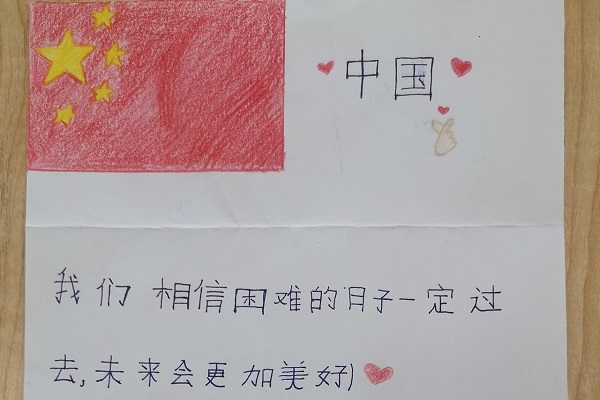 中国
我们相信困难的日子一定过
去,未来会更加美好)